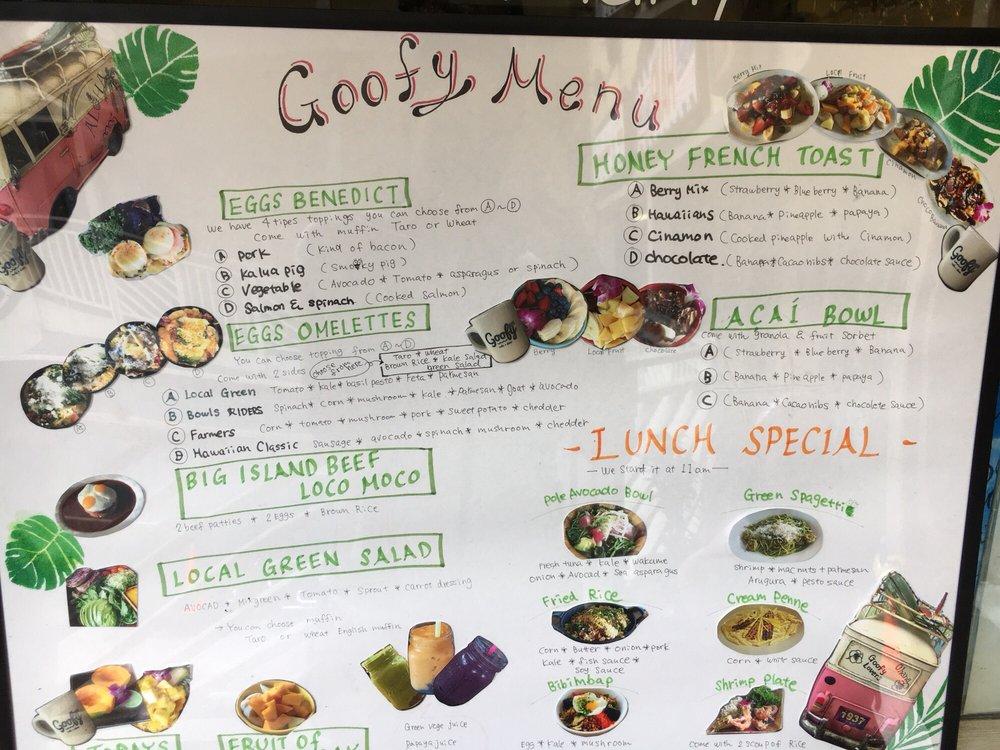 Goofy Menu
EGGS BENEDICT
We have 4 tipes toppings you can choose from Ⓐ~Ⓓ
Come with muffin Taro or Wheat
Ⓐ pork (King of bacon)
Ⓑ Kalua pig (Smoky pig)
Ⓒ Vegetable (Avocado * Tomato * asparagus or spinach)
Ⓓ Salmon & spinach (Cooked Salmon)
EGGS OMELETTES
You can choose topping from Ⓐ~Ⓓ
Come with 2 sides
Taro * wheat
Brown Rice * kale Salad
Green Salad
Ⓐ Local Green Tomato * kale * basil pesto * Feta * Palmesan
Ⓑ Bowls RIDERS Spinach * Corn * mushroom * kale * Palmesan * Goat * avocado
Ⓒ Farmers Corn * tomato * mushroom * pork * sweet potato * chedder
Ⓓ Hawaiian Classic Sausage * avocado * spinach * mushroom * chedder
BIG ISLAND BEEF
LOCO MOCO
2 beef patties * 2 Eggs * Brown Rice
LOCAL GREEN SALAD
AVOCADO * Mixgreen * Tomato * Sprout * Carrot dressing
→ You can choose muffin
Taro or wheat English muffin
Green vege juice
Papaya juice
TODAYS
FRUIT OF
Berry Mix
Local Fruit
Cinamon
Chocolate
HONEY FRENCH TOAST
Ⓐ Berry Mix (Strawberry * Blueberry * Banana)
Ⓑ Hawaiians (Banana * Pineapple * papaya)
Ⓒ Cinamon (Cooked pineapple with Cinamon)
Ⓓ chocolate. (Banana * Cacaonibs * chocolate sauce)
Goofy
Goofy
Goofy
Goofy
Berry
Local Fruit
chocolate
AÇAÍ BOWL
Come with granola & fruit Sorbet
Ⓐ (Strawberry * Blueberry * Banana)
Ⓑ (Banana * Pineapple * papaya)
Ⓒ (Banana * Cacaonibs * chocolate Sauce)
- LUNCH SPECIAL -
— We start it at 11am —
Poke Avocado Bowl
Fresh tuna * kale * wakame
onion * Avocado * Sea asparagus
Green Spagetti
Shrimp * mac nuts * palmesan
Arugura * pesto sauce
Fried Rice
Corn * Butter * onion * pork
kale * fish sauce *
Soy Sauce
Cream Penne
Corn * white sauce
Bibimbap
Egg * Kale * mushroom
Shrimp Plate
Come with 2 scoup of Rice
1937